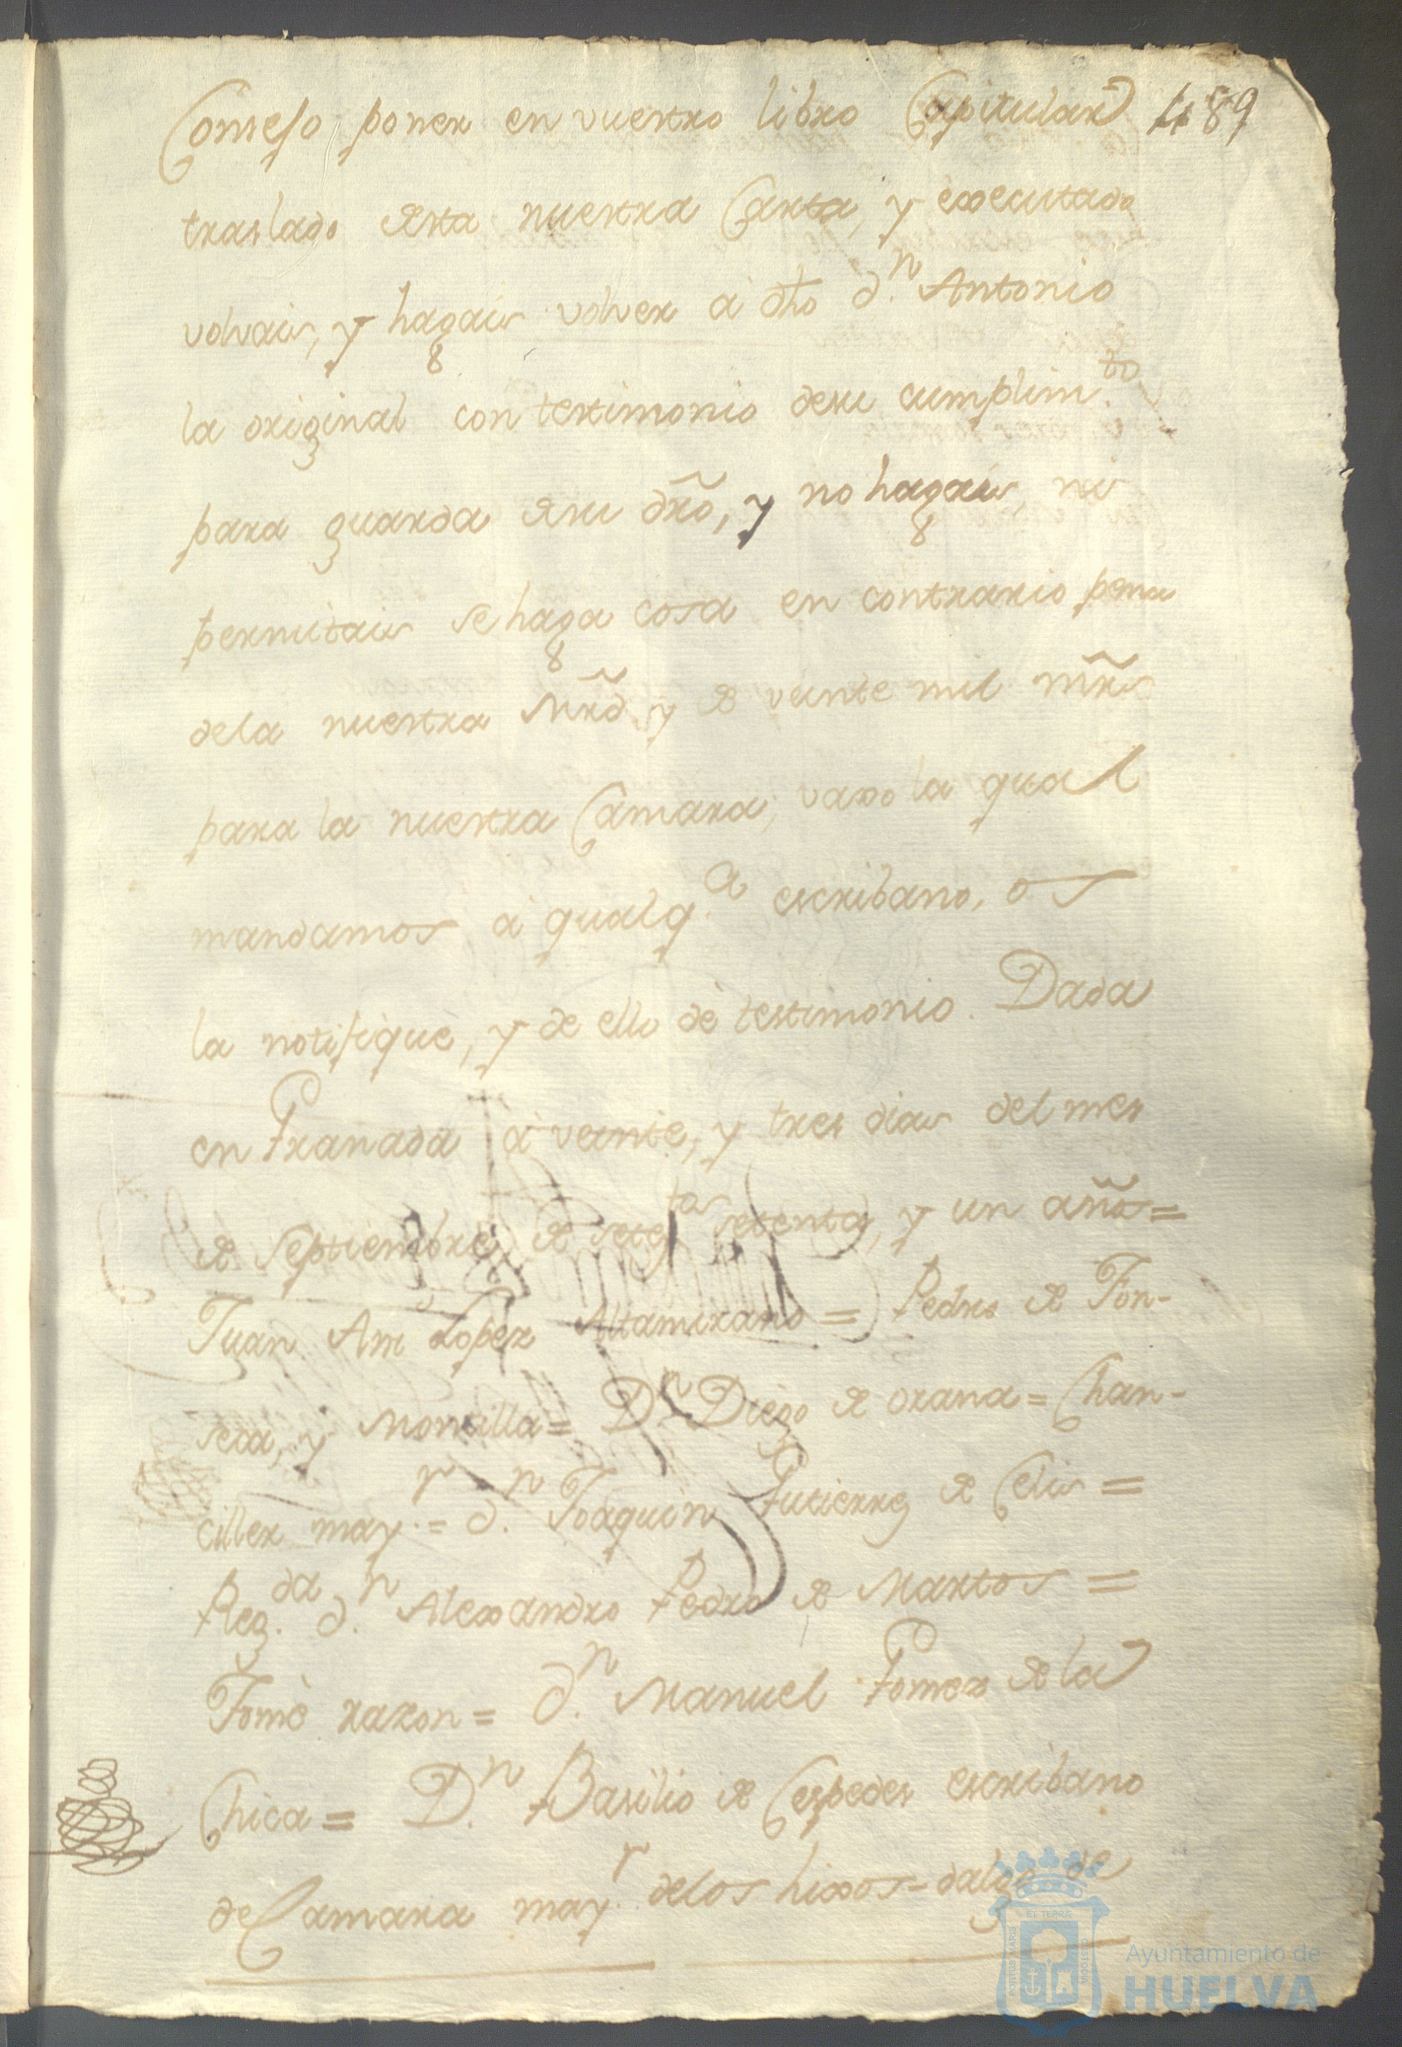 Consejo poner en vuestro libro Capitular 489
traslado desta nuestra Carta, y executado
volvais, y hagais volver á dho d.n Antonio
la original con testimonio desu cumplim.to
para guarda desu dro, y no hagais, ni
permitais se haga cosa en contrario pena
dela nuestra Mrd y de veinte mil mrs
para la nuestra Camara, vaxo la qual
mandamos á qualq.a escribano, os
la notifique, y de ello dè testimonio. Dada
en Granada á veinte, y tres dias del mes
de Septiembre de setez.tos setenta, y un años=
Juan Lopez Altamirano = Pedro de Fon-
seca, y Montilla= D.n Diego de orana= Chan-
ciller may.r = d.n Joaquin Gutierrez de Celis =
Reg.da d.n Alexandro Pedro de Martos =
Tomè razon= d.n Manuel Gomez de la
Chica= D.n Basilio de Cespedes escribano
de Camara may.r delos hixos=dalgo de
Ayuntamiento de
HUELVA